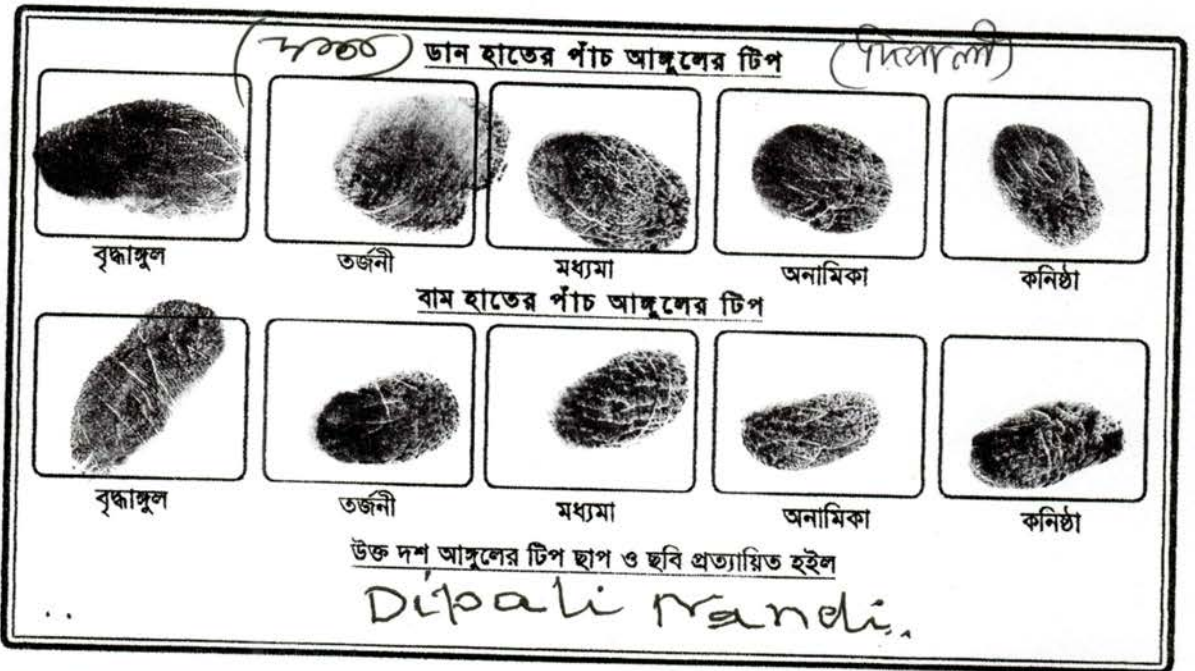 ডান হাতের পাঁচ আঙ্গুলের টিপ (দিপালী)
বৃদ্ধাঙ্গুল তর্জনী মধ্যমা অনামিকা কনিষ্ঠা
বাম হাতের পাঁচ আঙ্গুলের টিপ
বৃদ্ধাঙ্গুল তর্জনী মধ্যমা অনামিকা কনিষ্ঠা
উক্ত দশ আঙ্গুলের টিপ ছাপ ও ছবি প্রত্যায়িত হইল
Dipali Nandi.